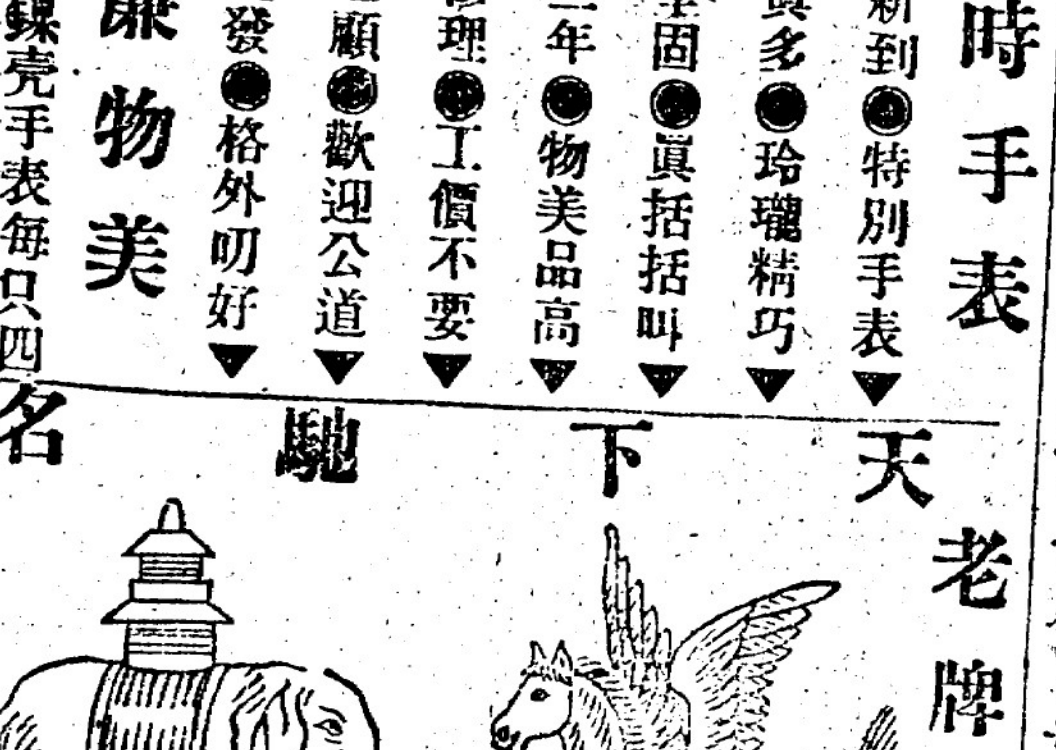 時手表
新到◉特別手表▼
多◉玲瓏精巧▼
固◉眞括括叫▼
年◉物美品高▼
理◉工價不要▼
顧◉歡迎公道▼
發◉格外叨好▼
廉物美
鎳壳手表每只四
天下馳名
老牌